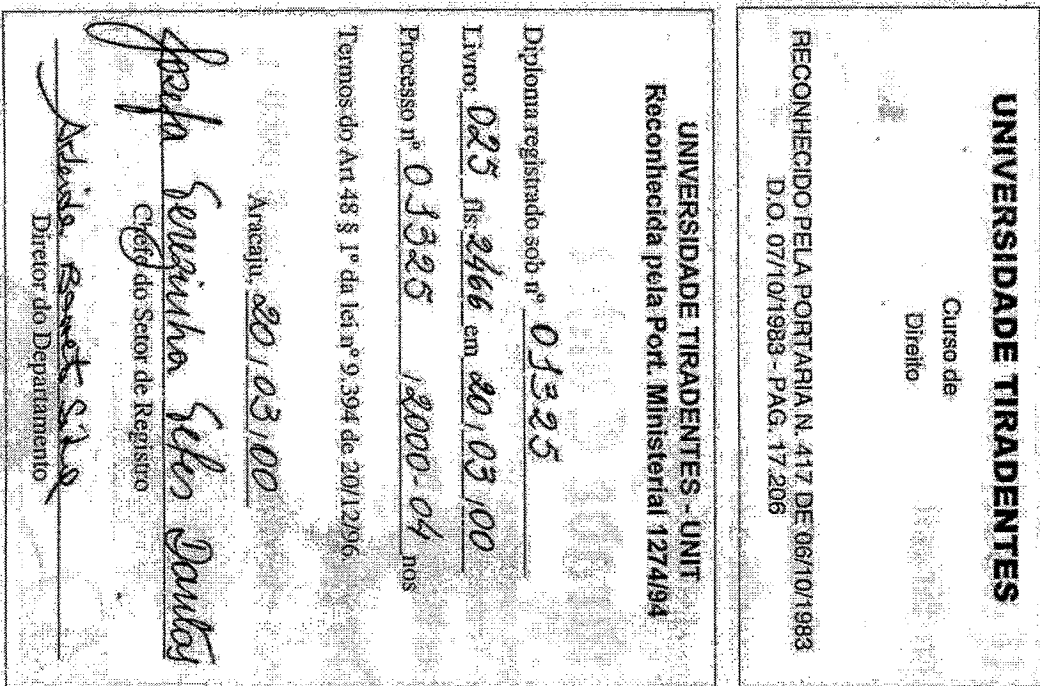 UNIVERSIDADE TIRADENTES
Curso de
Direito
RECONHECIDO PELA PORTARIA N. 417, DE 06/10/1983
D.O. 07/10/1983 - PAG. 17.206
UNIVERSIDADE TIRADENTES - UNIT
Reconhecida pela Port. Ministerial 1274/94
Diploma registrado sob nº 01325
Livro: 025 fls: 2466 em 20/03/00
Processo nº 01325 /2000-04 nos
Termos do Art 48 § 1º da lei nº 9.394 de 20/12/96.
Aracaju, 20/03/00
Josefa Terezinha Santos
Chefe do Setor de Registro
Silva
Diretor do Departamento